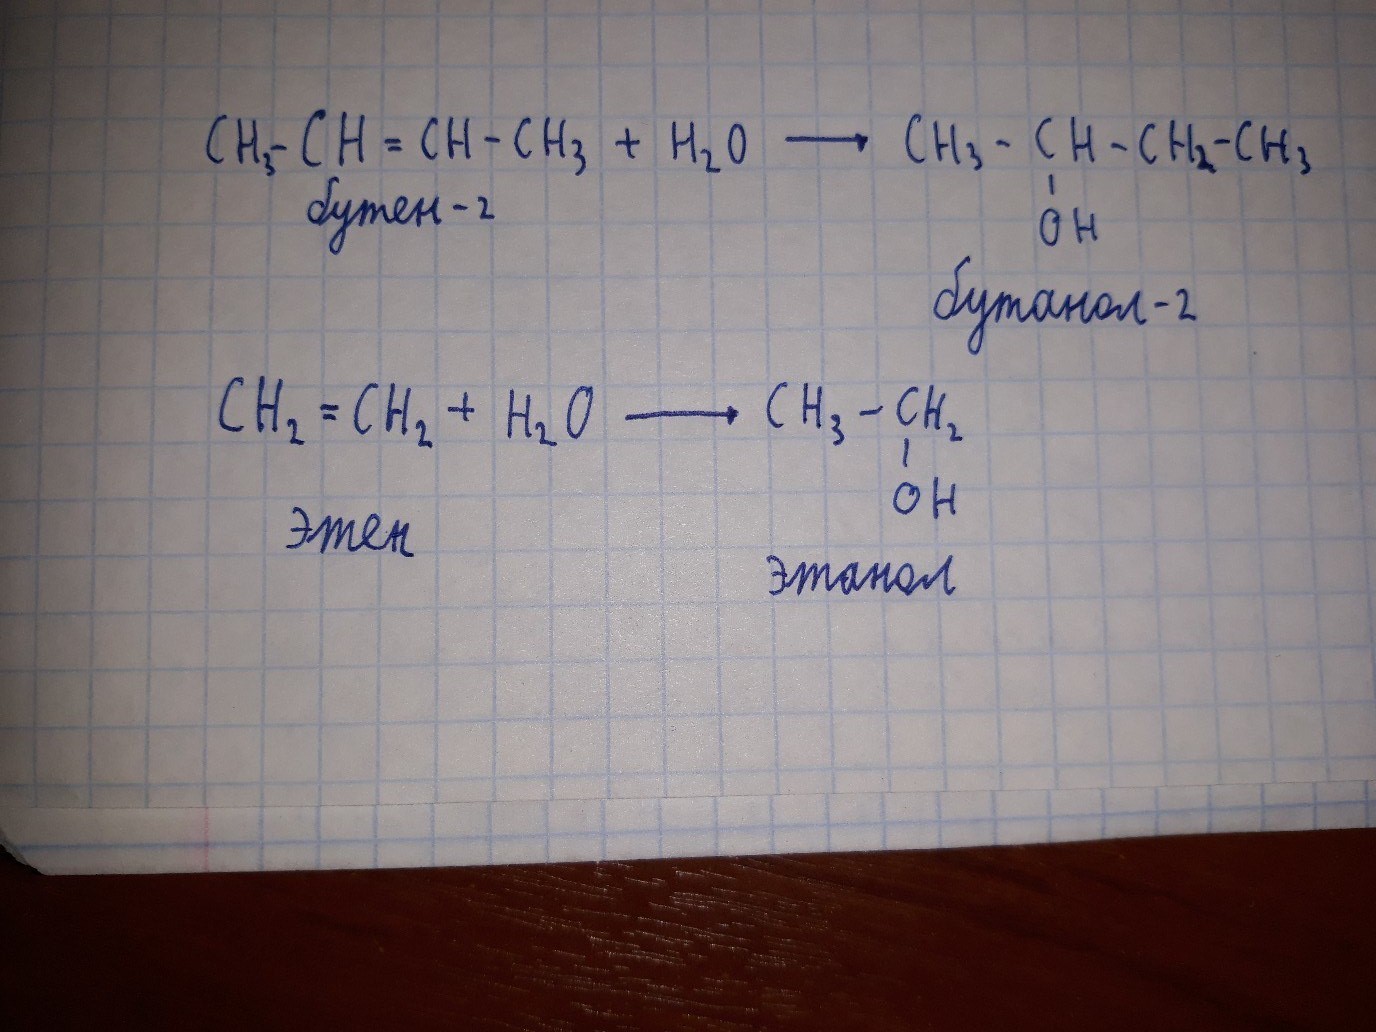 CH₃-CH=CH-CH₃ + H₂O → CH₃-CH-CH₂-CH₃
бутен-2
OH
бутанол-2
CH₂=CH₂ + H₂O → CH₃-CH₂
OH
этен
этанол